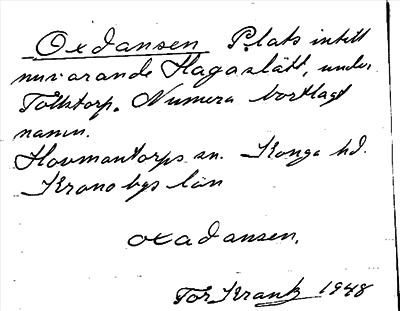 Oxdansen Plats intill
nuvarande Hagaslätt, under
Tolkstorp. Numera bortlagt
namn.
Hovmantorps sn. Konga hd.
Kronobgs län
oxadansen.
Tor Krank 1948